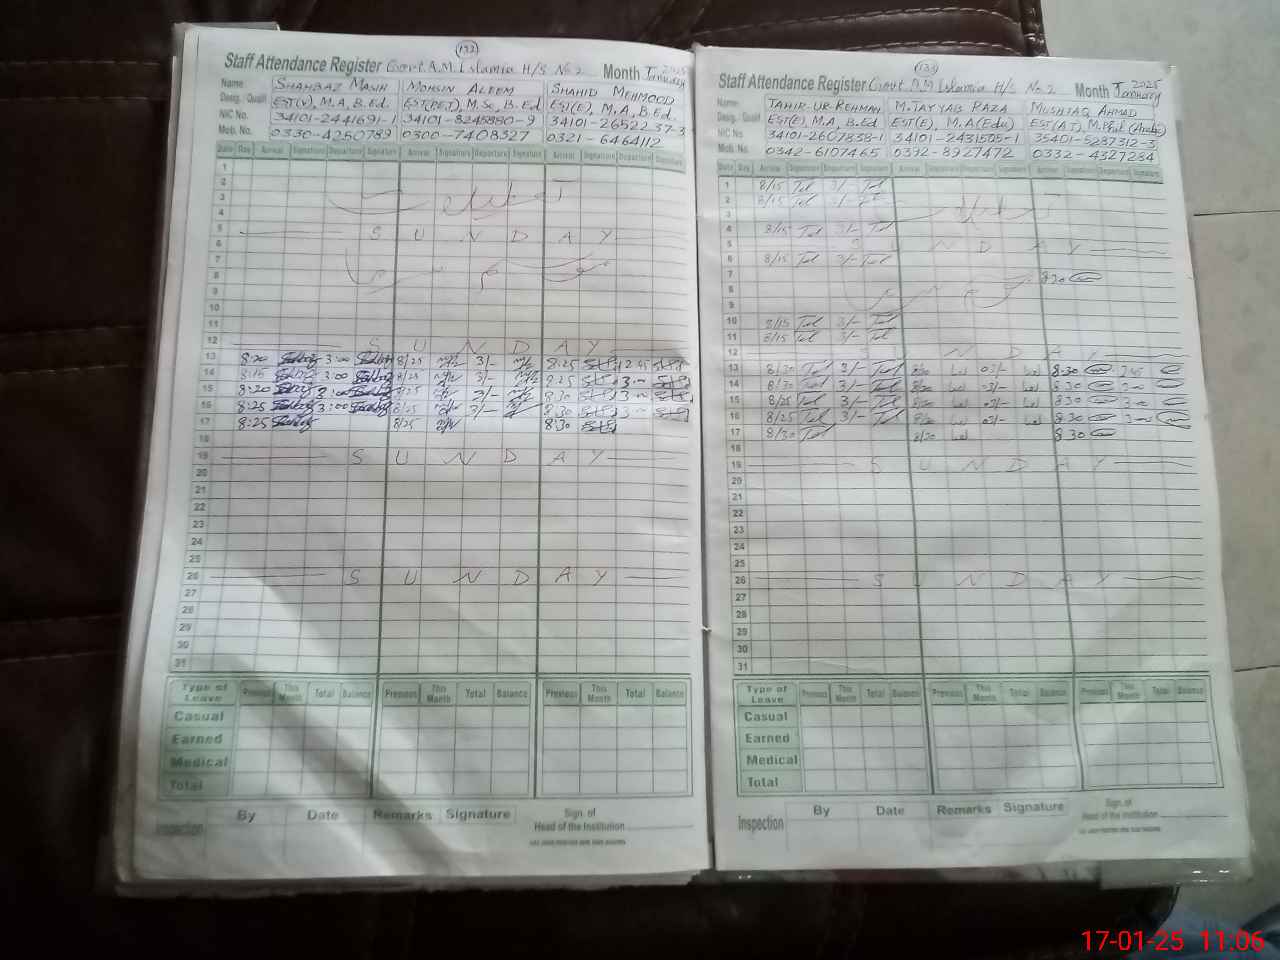 132
Staff Attendance Register Govt. A.M. Islamia H/S No. 2 Month January 2025
Name SHAHBAZ MASIH MOHSIN ALEEM SHAHID MEHMOOD
Desig. Qualif. EST(V), M.A, B.Ed. EST(PET), M.Sc, B.Ed EST(E), M.A, B.Ed.
NIC No. 34101-2441691-1 34101-8245880-9 34101-2652237-3
Mob. No. 0330-4250789 0300-7408327 0321-6464112
Date Day Arrival Signature Departure Signature Arrival Signature Departure Signature Arrival Signature Departure Signature
1
2
3
4
5 SUNDAY
6
7
8
9
10
11
12 SUNDAY
13 8:20 3:00 8/25 3/- 8:25 2 45
14 8:15 3:00 8/25 3/- 8:25 3-
15 8:20 3:00 8/25 3/- 8:30 3-
16 8:25 3:00 8/25 3/- 8:30 3-
17 8:25 8/25 8:30
18
19 SUNDAY
20
21
22
23
24
25
26 SUNDAY
27
28
29
30
31
Type of Leave Previous This Month Total Balance Previous This Month Total Balance Previous This Month Total Balance
Casual
Earned
Medical
Total
Inspection By Date Remarks Signature Sign. of
Head of the Institution
Staff Attendance Register Govt. A.M Islamia H/S No. 2 Month January 2025
Name TAHIR-UR-REHMAN M. TAYYAB RAZA MUSHTAQ AHMAD
Desig. Qualif. EST(E), M.A, B.Ed EST(E), M.A(Edu) EST(AT), M.Phil (Arabic)
NIC No. 34101-2607838-1 34101-2431505-1 35401-5287312-3
Mob. No. 0342-6107465 0332-8927472 0332-4327284
Date Day Arrival Signature Departure Signature Arrival Signature Departure Signature Arrival Signature Departure Signature
1 8/15 3/-
2 8/15 3/-
3
4 8/15 3/-
5 SUNDAY
6 8/15 3/-
7 8 30
8
9
10 8/15 3/-
11 8/15 3/-
12 SUNDAY
13 8/30 3/- 8/20 03/- 8:30 2 45
14 8/30 3/- 8/20 03/- 8 30 3-00
15 8/25 3/- 8/20 03/- 8 30 3-00
16 8/25 3/- 8/20 03/- 8 30 3-00
17 8/30 8/20 8 30
18
19 SUNDAY
20
21
22
23
24
25
26 SUNDAY
27
28
29
30
31
Type of Leave Previous This Month Total Balance Previous This Month Total Balance Previous This Month Total Balance
Casual
Earned
Medical
Total
Inspection By Date Remarks Signature Sign. of
Head of the Institution
17-01-25 11:06